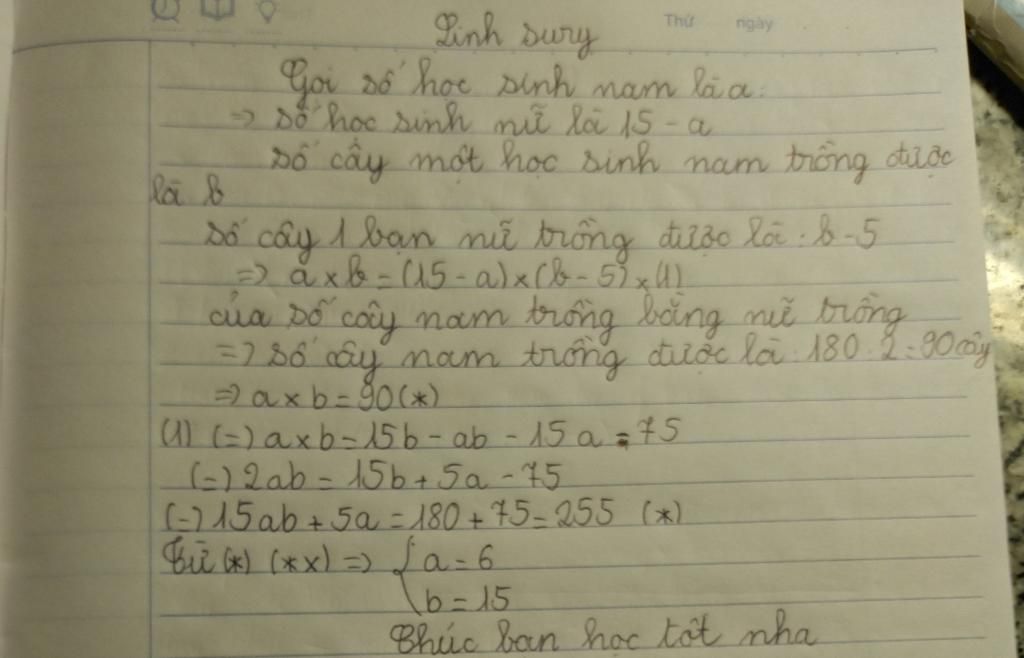 Thứ ngày
Linh sury
Gọi số học sinh nam là a.
=> số học sinh nữ là 15 - a
số cây một học sinh nam trồng được
là b
số cây 1 bạn nữ trồng được là : b - 5
=> a x b = (15 - a) x (b - 5) x (1)
của số cây nam trồng bằng nữ trồng
=> số cây nam trồng được là : 180 : 2 = 90 cây
=> a x b = 90 (*)
(1) (=) a x b = 15b - ab - 15a = 75
(=) 2ab = 15b + 5a - 75
(=) 15ab + 5a = 180 + 75 = 255 (*)
Từ (*) (*x) => { a = 6
b = 15
Chúc bạn học tốt nha